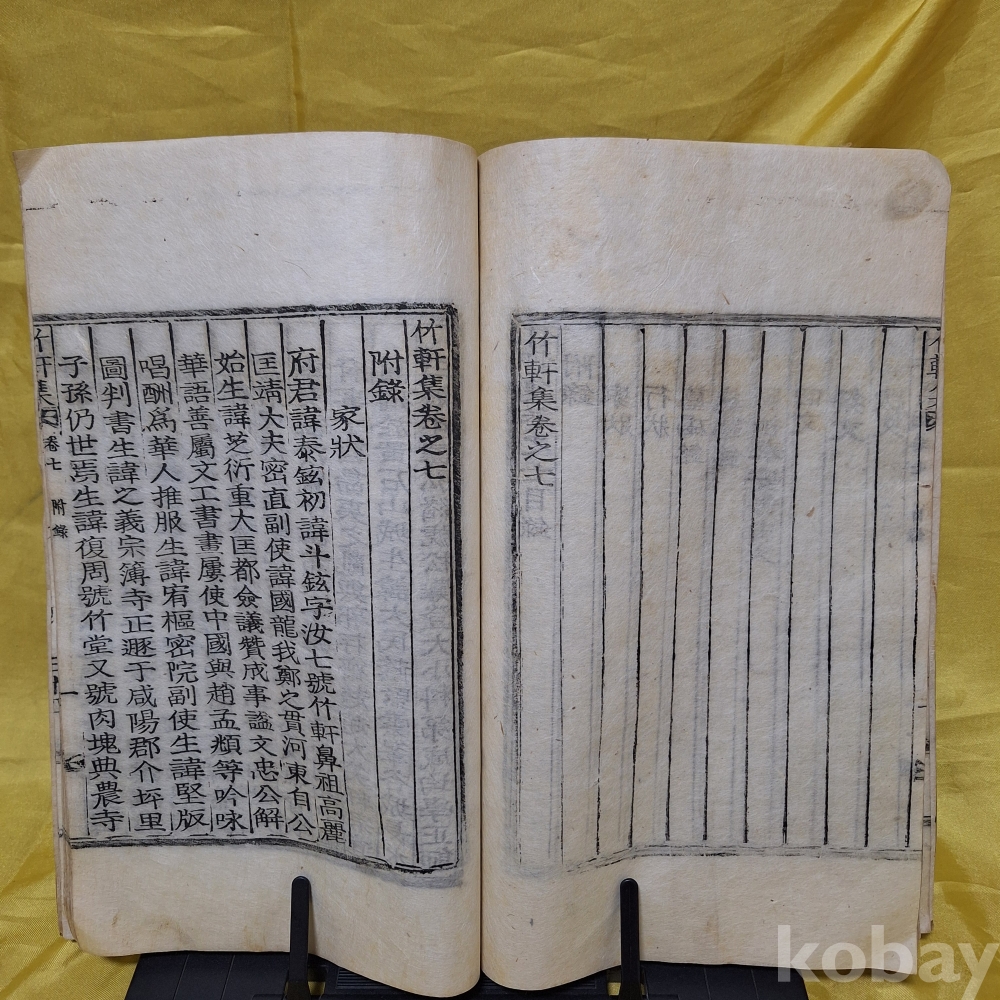 竹軒集卷之七
竹軒集卷之七
附錄
家狀
府君諱泰鉉初諱斗鉉字汝七號竹軒鼻祖高麗
匡靖大夫密直副使諱國龍我鄭之貫河東自公
始生諱芝衍重大匡都僉議贊成事謚文忠公解
華語善屬文工書畫屢使中國與趙孟頫等吟咏
唱酬爲華人推服生諱宥樞密院副使生諱堅版
圖判書生諱之義宗簿寺正遯于咸陽郡介坪里
子孫仍世焉生諱復周號竹堂又號肉塊典農寺
竹軒集
卷七
附錄
一
kobay